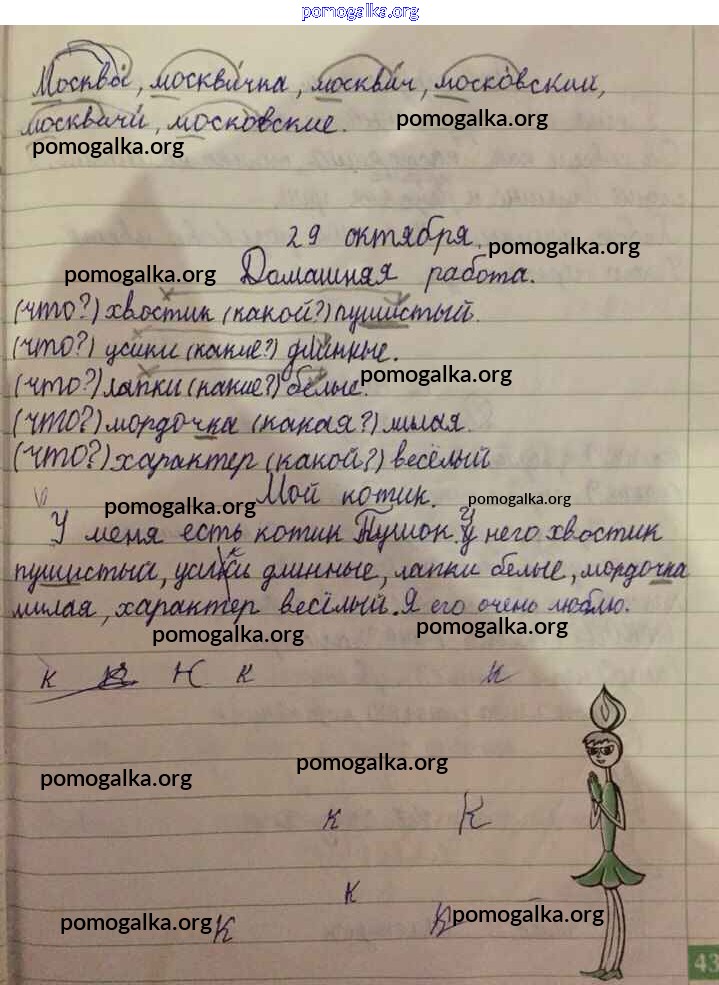 pomogalka.org
Москва́, москви́чка, москви́ч, моско́вский,
москвичи́, моско́вские. pomogalka.org
pomogalka.org
29 октября. pomogalka.org
pomogalka.org Домашняя работа.
(что?) хвостик (какой?) пушистый.
(что?) усики (какие?) длинные.
(что?) лапки (какие?) белые. pomogalka.org
(что?) мордочка (какая?) милая.
(что?) характер (какой?) весёлый
Мой котик. pomogalka.org
pomogalka.org
У меня есть котик Пушок. У него хвостик
пушистый, усики длинные, лапки белые, мордочка
милая, характер весёлый. Я его очень люблю.
pomogalka.org pomogalka.org
к Н к к
pomogalka.org pomogalka.org
к К
к
pomogalka.org К К pomogalka.org
43